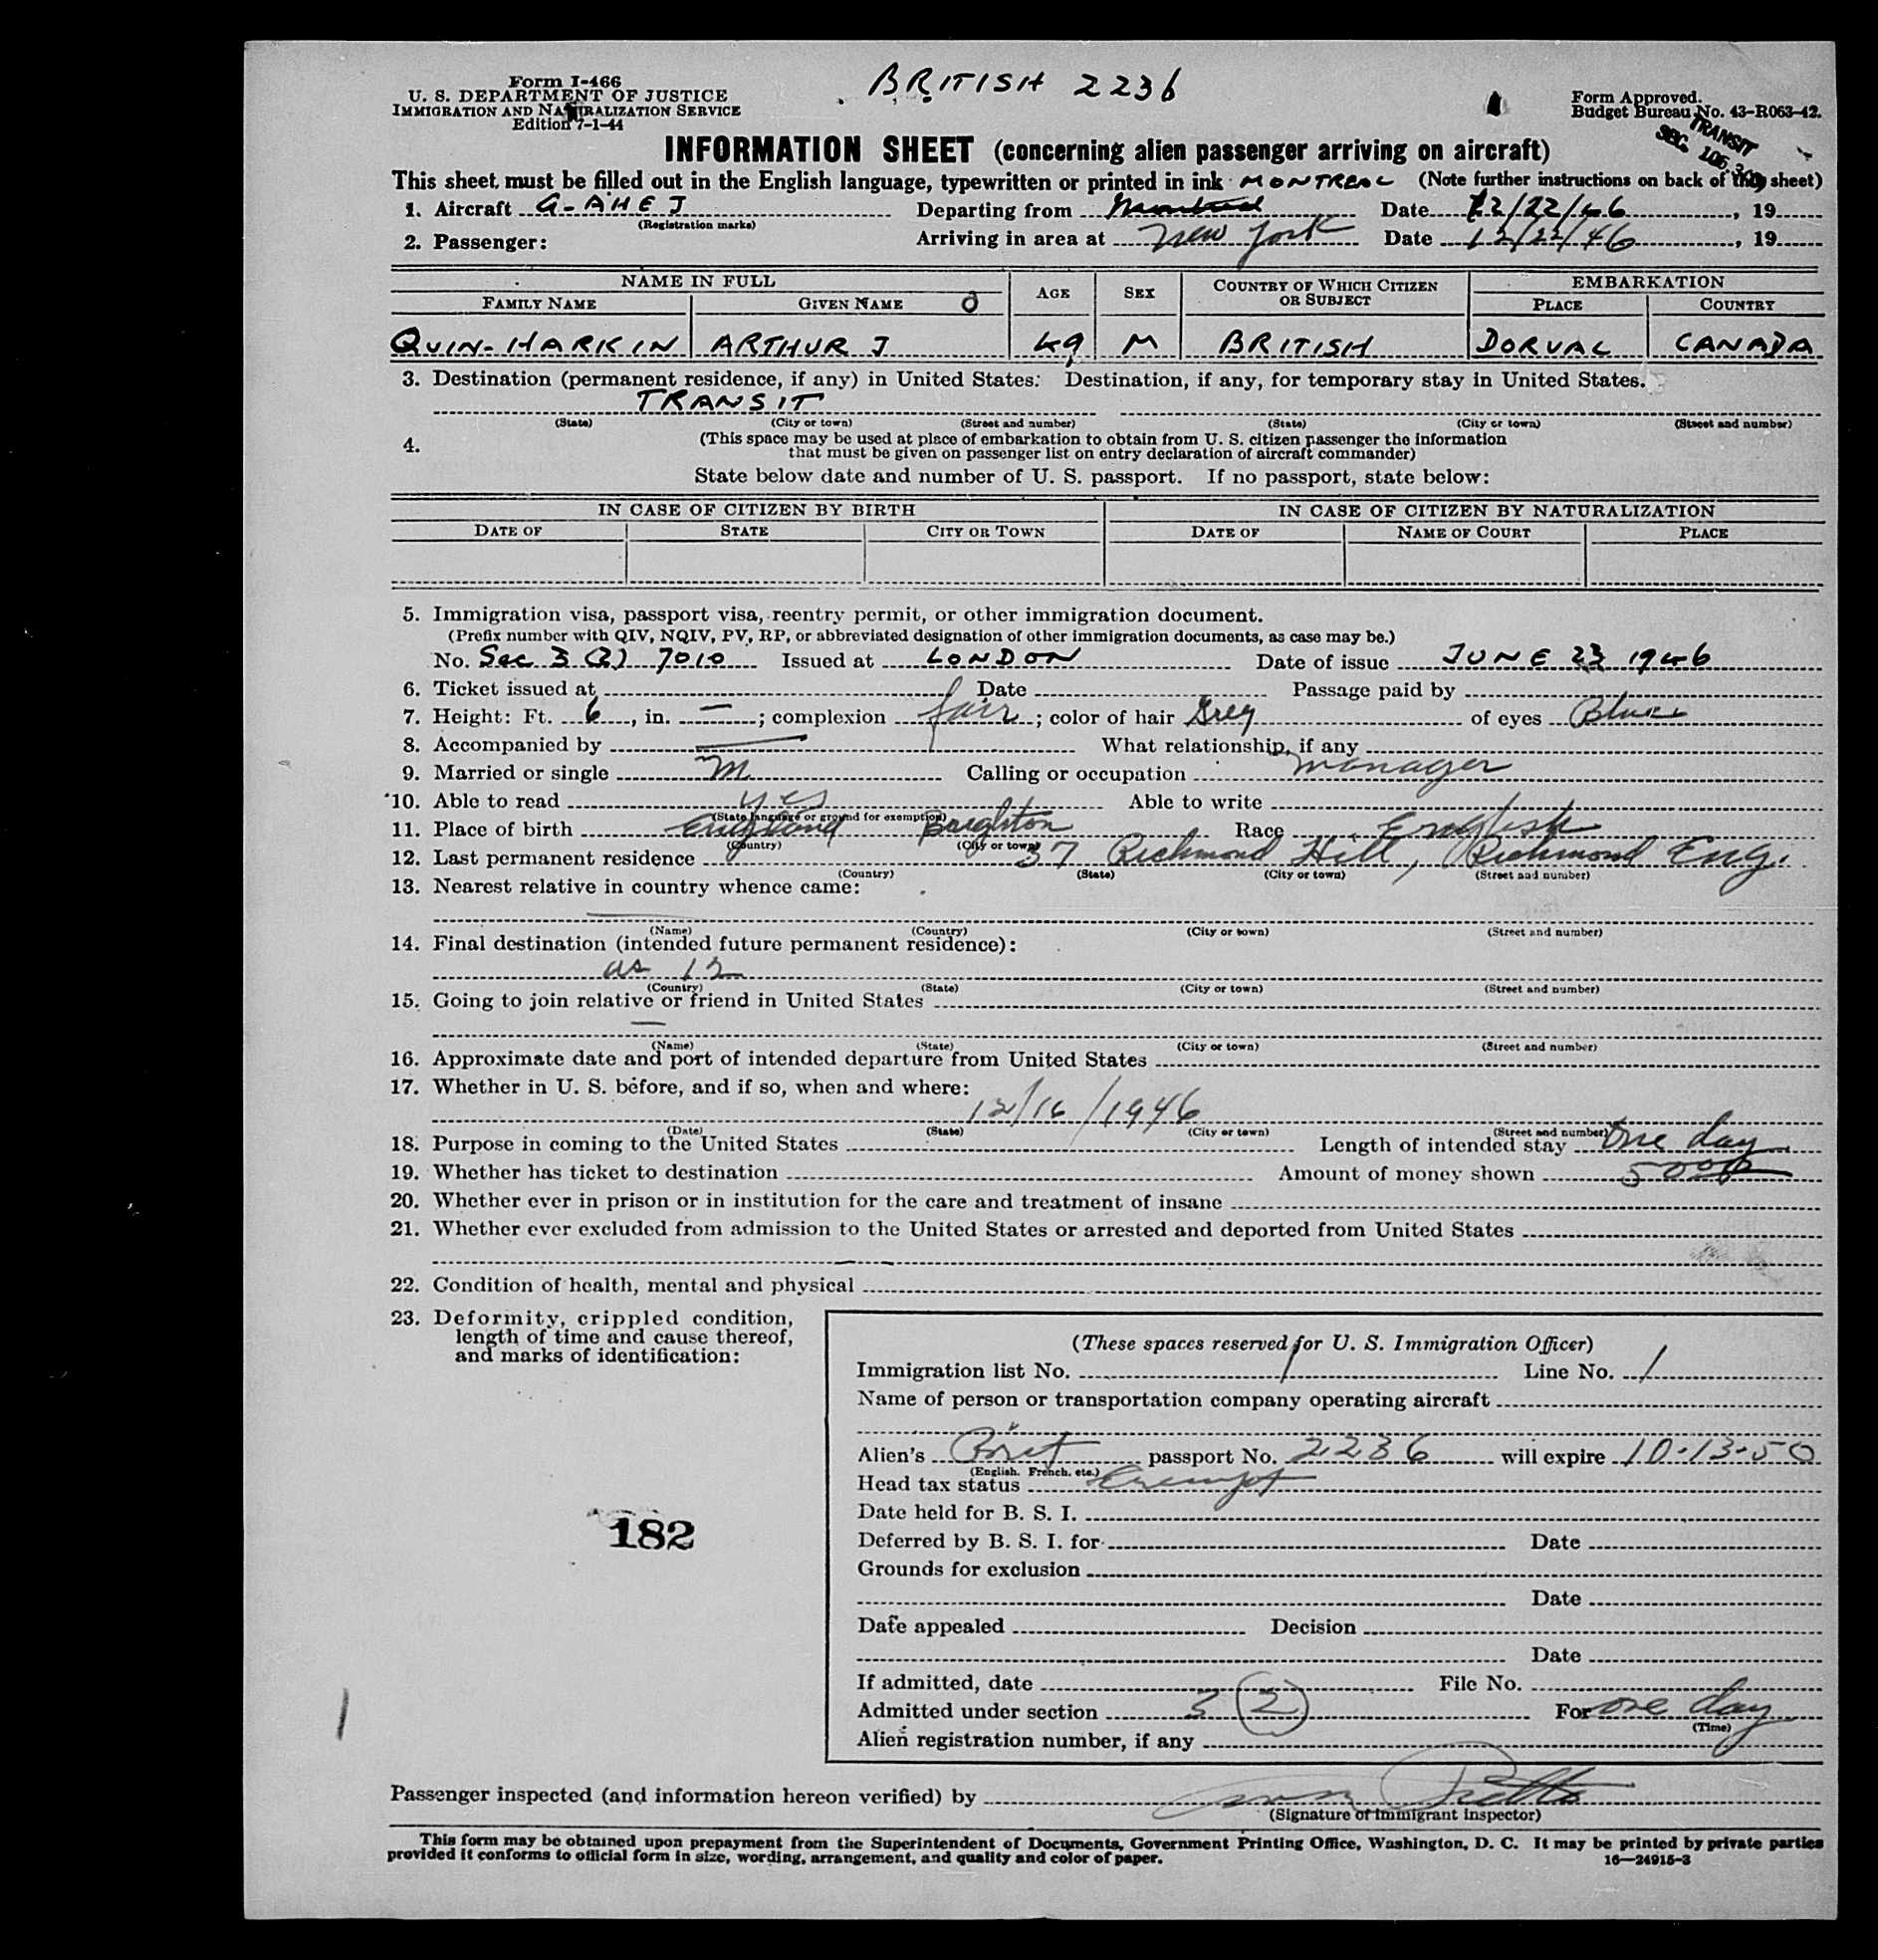 Form I-466
U. S. DEPARTMENT OF JUSTICE
IMMIGRATION AND NATURALIZATION SERVICE
Edition 7-1-44
BRITISH 2236
Form Approved.
Budget Bureau No. 43-R063-42.
TRANSIT
SEC. 106.3
INFORMATION SHEET (concerning alien passenger arriving on aircraft)
This sheet must be filled out in the English language, typewritten or printed in ink MONTREAL (Note further instructions on back of this sheet)
1. Aircraft G-AHEJ Departing from Montreal Date 12/22/46, 19
(Registration marks)
2. Passenger: Arriving in area at New York Date 12/22/46, 19
NAME IN FULL AGE SEX COUNTRY OF WHICH CITIZEN OR SUBJECT EMBARKATION
FAMILY NAME GIVEN NAME PLACE COUNTRY
QUIN-HARKIN ARTHUR J 49 M BRITISH DORVAL CANADA
3. Destination (permanent residence, if any) in United States: Destination, if any, for temporary stay in United States.
TRANSIT
(State) (City or town) (Street and number) (State) (City or town) (Street and number)
4. (This space may be used at place of embarkation to obtain from U. S. citizen passenger the information
that must be given on passenger list on entry declaration of aircraft commander)
State below date and number of U. S. passport. If no passport, state below:
IN CASE OF CITIZEN BY BIRTH IN CASE OF CITIZEN BY NATURALIZATION
DATE OF STATE CITY OR TOWN DATE OF NAME OF COURT PLACE
5. Immigration visa, passport visa, reentry permit, or other immigration document.
(Prefix number with QIV, NQIV, PV, RP, or abbreviated designation of other immigration documents, as case may be.)
No. Sec 3 (2) 7010 Issued at LONDON Date of issue JUNE 23 1946
6. Ticket issued at Date Passage paid by
7. Height: Ft. 6, in. —; complexion fair; color of hair Grey of eyes Blue
8. Accompanied by — What relationship, if any
9. Married or single M Calling or occupation Manager
10. Able to read yes Able to write
(State language or ground for exemption)
11. Place of birth England Brighton Race English
(Country) (City or town)
12. Last permanent residence 37 Richmond Hill, Richmond Eng.
(Country) (State) (City or town) (Street and number)
13. Nearest relative in country whence came:
(Name) (Country) (City or town) (Street and number)
14. Final destination (intended future permanent residence):
as 12
(Country) (State) (City or town) (Street and number)
15. Going to join relative or friend in United States
—
(Name) (State) (City or town) (Street and number)
16. Approximate date and port of intended departure from United States
17. Whether in U. S. before, and if so, when and where:
12/16/1946
(Date) (State) (City or town) (Street and number)
18. Purpose in coming to the United States Length of intended stay One day
19. Whether has ticket to destination Amount of money shown
20. Whether ever in prison or in institution for the care and treatment of insane
21. Whether ever excluded from admission to the United States or arrested and deported from United States
22. Condition of health, mental and physical
23. Deformity, crippled condition,
length of time and cause thereof,
and marks of identification:
182
(These spaces reserved for U. S. Immigration Officer)
Immigration list No. 1 Line No. 1
Name of person or transportation company operating aircraft
Alien's Brit passport No. 2236 will expire 10-13-50
(English, French, etc.)
Head tax status Exempt
Date held for B. S. I.
Deferred by B. S. I. for Date
Grounds for exclusion
Date
Date appealed Decision
Date
If admitted, date File No.
Admitted under section 3 (2) For one day
(Time)
Alien registration number, if any
Passenger inspected (and information hereon verified) by
(Signature of Immigrant Inspector)
This form may be obtained upon prepayment from the Superintendent of Documents, Government Printing Office, Washington, D. C. It may be printed by private parties
provided it conforms to official form in size, wording, arrangement, and quality and color of paper.
16—24915-3